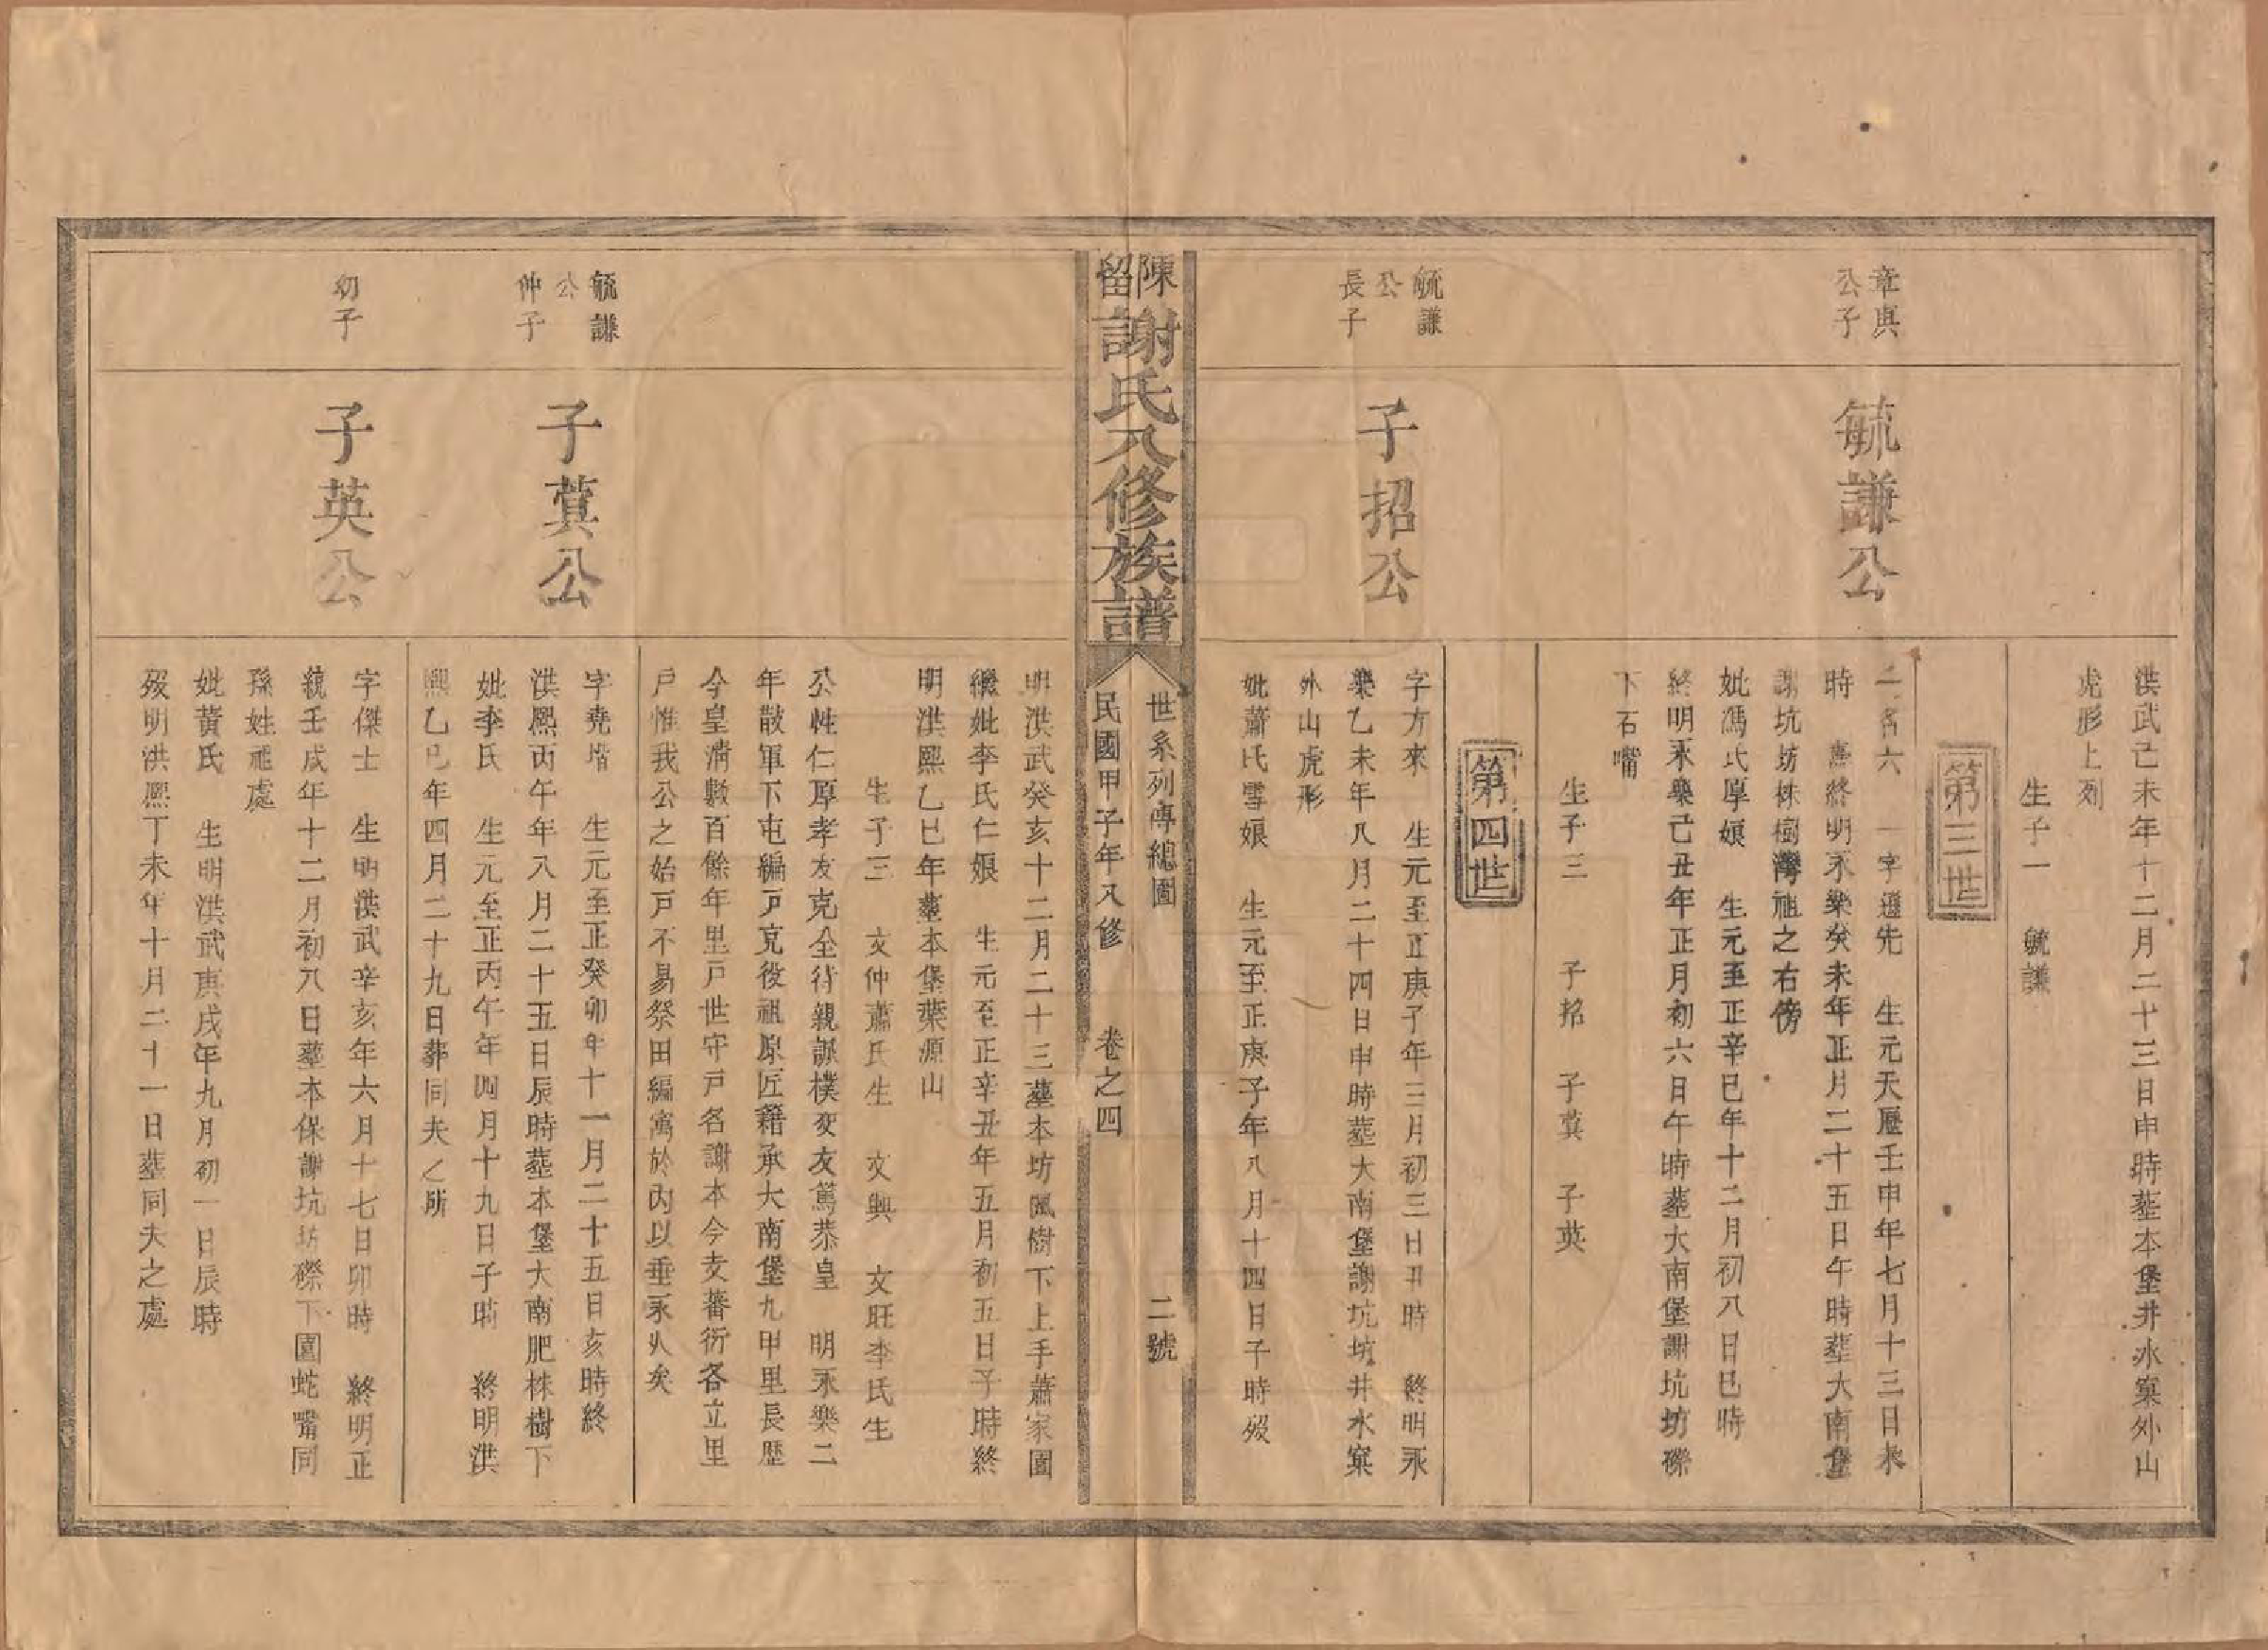 洪武己未年十二月二十三日申時塟本堡井水窠外山
虎形上列
生子一　毓謙
第三世
章與
公子
毓謙公
二名六　一字遜先　生元天歷壬申年七月十三日未
時　終明永樂癸未年正月二十五日午時塟大南堡
謝坑坊株樹灣祖之右傍
妣馮氏厚娘　生元至正辛巳年十二月初八日巳時
終明永樂己丑年正月初六日午時塟大南堡謝坑坊磜
下石嘴
生子三　子招　子蓂　子英
第四世
毓謙
公
長子
子招公
字方來　生元至正庚子年三月初三日丑時　終明永
樂乙未年八月二十四日申時塟大南堡謝坑坊井水窠
外山虎形
妣蕭氏雪娘　生元至正庚子年八月十四日子時歿
陳留謝氏八修族譜
世系列傳總圖　二號
民國甲子年八修　卷之四
明洪武癸亥十二月二十三塟本坊風樹下上手蕭家園
繼妣李氏仁娘　生元至正辛丑年五月初五日子時終
明洪熙乙巳年塟本堡葉源山
生子三　文仲蕭氏生　文興　文旺李氏生
公性仁厚孝友克全待親誠樸交友篤恭皇　明永樂二
年散軍下屯編戸克役祖原匠籍承大南堡九甲里長歷
今皇清數百餘年里戸世守戸名謝本今支蕃衍各立里
戸惟我公之始戸不易祭田編寓於內以垂永久矣
毓謙
公
仲子
子蓂公
字堯堦　生元至正癸卯年十一月二十五日亥時終
洪熙丙午年八月二十五日辰時塟本堡大南肥株樹下
妣李氏　生元至正丙午年四月十九日子時　終明洪
熙乙巳年四月二十九日葬同夫之所
幼子
子英公
字傑士　生明洪武辛亥年六月十七日卯時　終明正
統壬戌年十二月初八日塟本保謝坑坊磜下園蛇嘴同
孫姓祖處
妣黃氏　生明洪武庚戌年九月初一日辰時
歿明洪熙丁未年十月二十一日塟同夫之處